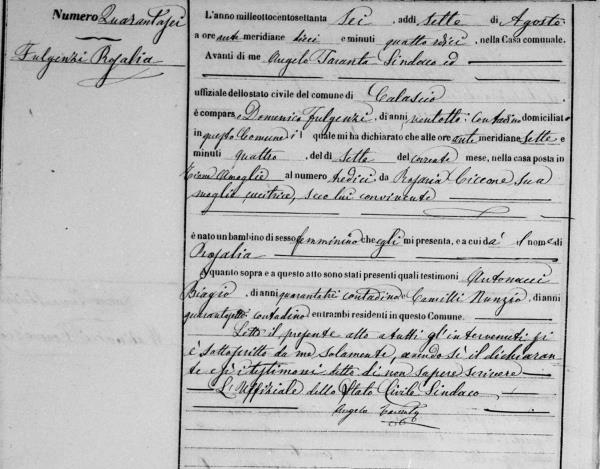 Numero Quarantasei
Fulgenzi Rosalia
L'anno milleottocentosettanta Sei, addì Sette di Agosto
a ore ante meridiane dieci e minuti quattordici, nella Casa comunale.
Avanti di me Angelo Taranta Sindaco ed
uffiziale dello stato civile del comune di Calascio
è comparso Domenico Fulgenzi, di anni ventotto contadino domiciliato
in questo Comune il quale mi ha dichiarato che alle ore ante meridiane sette e
minuti quattro del dì sette del corrente mese, nella casa posta in
al numero tredici da Rosaria Ciccone sua
moglie cucitrice, seco lui convivente
è nato un bambino di sesso femminino che egli mi presenta, e a cui dà il nome di
Rosalia
A quanto sopra e a questo atto sono stati presenti quali testimoni Antonacci
Biagio, di anni quarantatre contadino e Camilli Nunzio, di anni
quarantotto contadino entrambi residenti in questo Comune.
Letto il presente atto a tutti gl'intervenuti si
è sottoscritto da me solamente, avendo se il dichiaran-
te e i testimoni detto di non sapere scrivere
L'Uffiziale dello Stato Civile Sindaco
Angelo Taranta